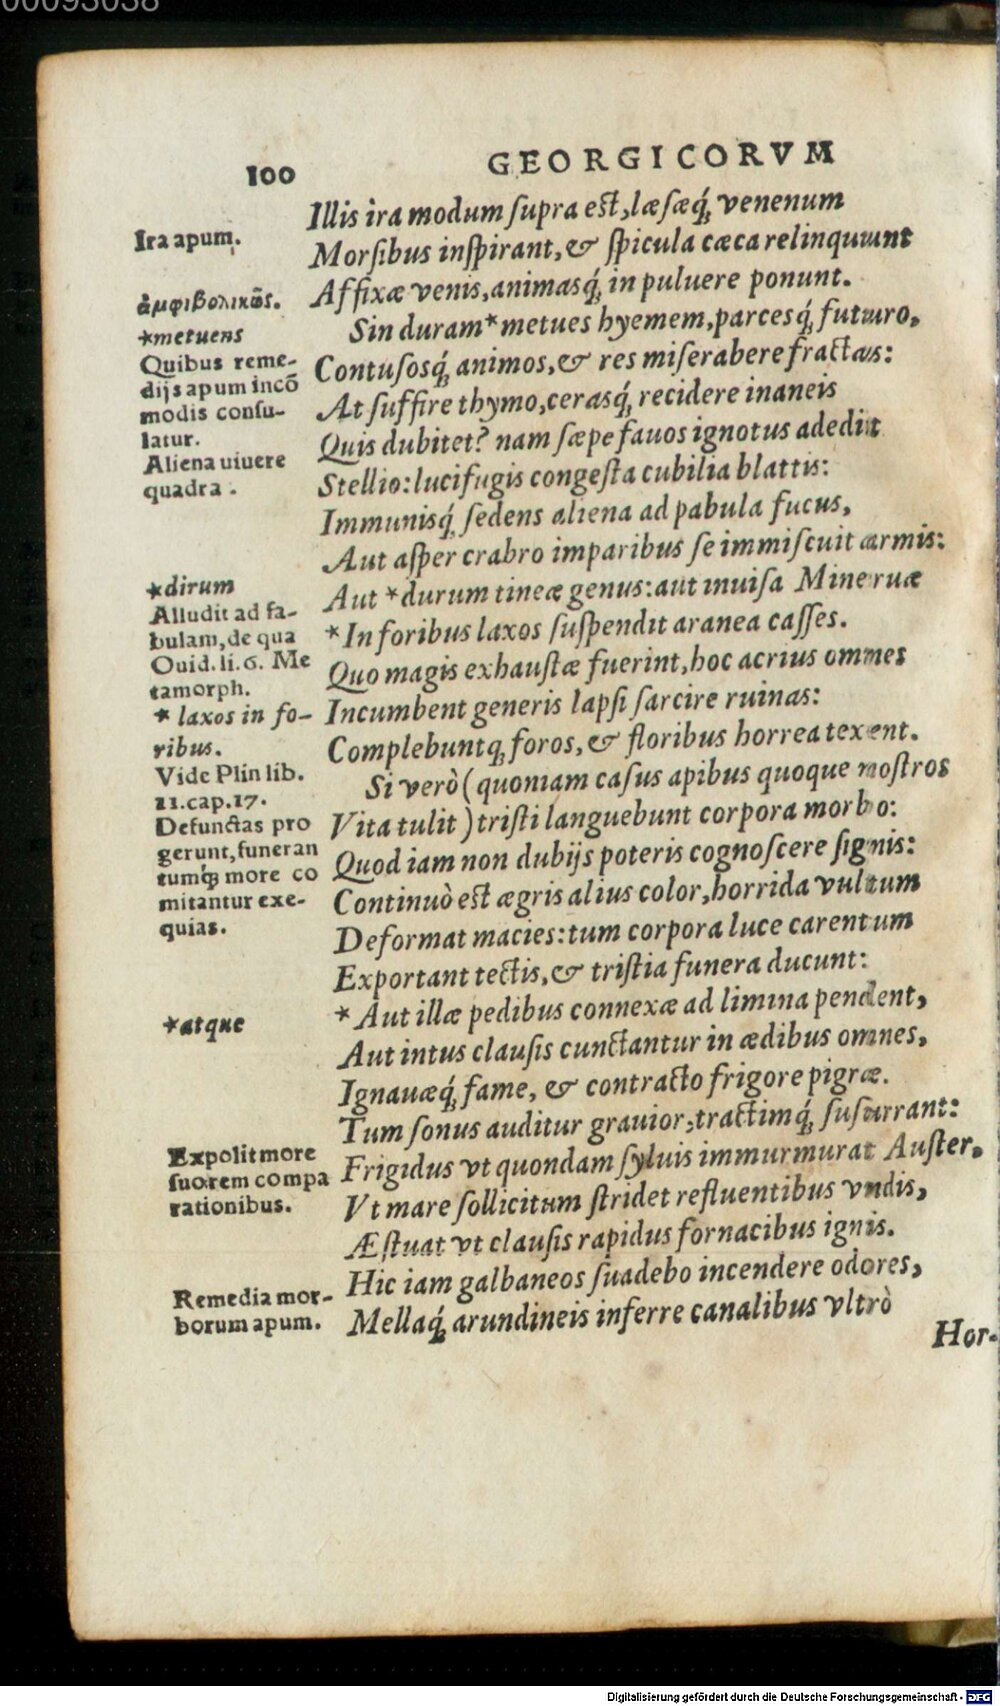 00095038
100
GEORGICORVM
Illis ira modum ſupra est, læſæq́; venenum
Morſibus inſpirant, & ſpicula cæca relinquunt
Affixæ venis, animasq́; in puluere ponunt.
Sin duram *metues hyemem, parcesq́; futuro,
Contuſosq́; animos, & res miſerabere fractas:
At ſuffire thymo, cerasq́; recidere inaneis
Quis dubitet? nam ſæpe fauos ignotus adedit
Stellio: lucifugis congeſta cubilia blattis:
Immunisq́; ſedens aliena ad pabula fucus,
Aut aſper crabro imparibus ſe immiſcuit armis:
Aut *durum tineæ genus: aut inuiſa Mineruæ
*In foribus laxos ſuſpendit aranea caſſes.
Quo magis exhauſtæ fuerint, hoc acrius omnes
Incumbent generis lapſi ſarcire ruinas:
Complebuntq; foros, & floribus horrea texent.
Si verò (quoniam caſus apibus quoque nostros
Vita tulit) triſti languebunt corpora morbo:
Quod iam non dubijs poteris cognoſcere ſignis:
Continuò est ægris alius color, horrida vultum
Deformat macies: tum corpora luce carentum
Exportant tectis, & triſtia funera ducunt:
*Aut illæ pedibus connexæ ad limina pendent,
Aut intus clauſis cunctantur in ædibus omnes,
Ignauæq́; fame, & contracto frigore pigræ.
Tum ſonus auditur grauior, tractimq́; ſuſurrant:
Frigidus vt quondam ſyluis immurmurat Auſter,
Vt mare ſollicitum ſtridet refluentibus vndis,
Æſtuat vt clauſis rapidus fornacibus ignis.
Hic iam galbaneos ſuadebo incendere odores,
Mellaq́; arundineis inferre canalibus vltrò
Hor-
Ira apum.
ἀμφιβολικῶς.
*metuens
Quibus reme-
dijs apum incõ
modis conſu-
latur.
Aliena uiuere
quadra.
*dirum
Alludit ad fa-
bulam, de qua
Ouid. li. 6. Me
tamorph.
* laxos in fo-
ribus.
Vide Plin lib.
11. cap. 17.
Defunctas pro
gerunt, funeran
tumq́; more co
mitantur exe-
quias.
*atque
Expolit more
ſuo rem compa
rationibus.
Remedia mor-
borum apum.
Digitalisierung gefördert durch die Deutsche Forschungsgemeinschaft - DFG